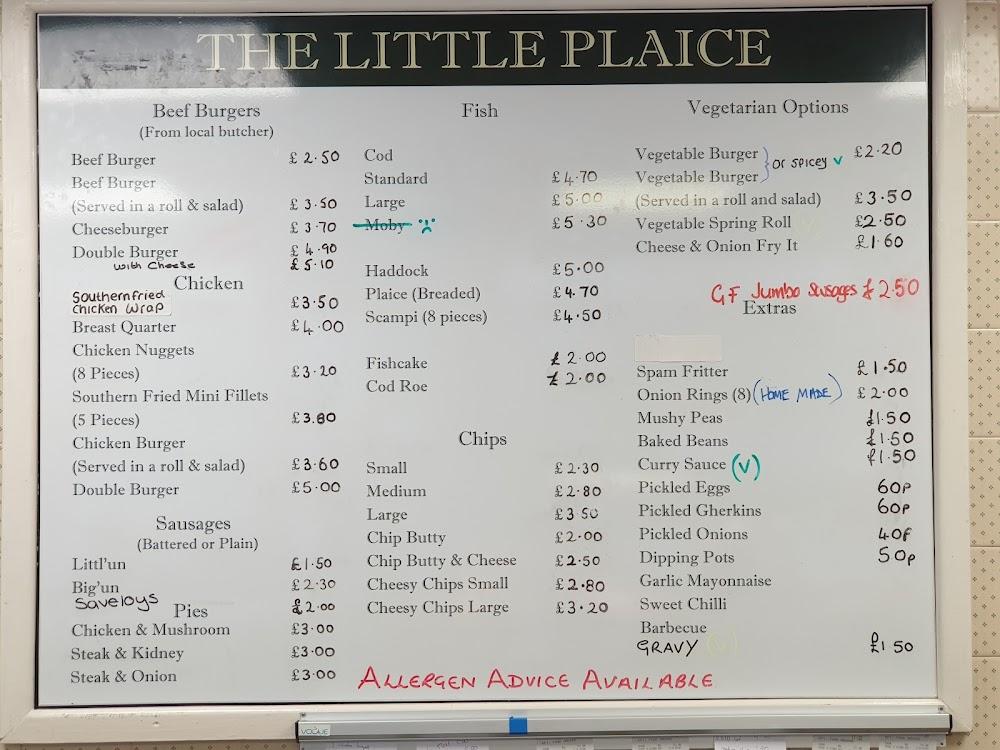 THE LITTLE PLAICE
Beef Burgers
(From local butcher)
Beef Burger £2.50
Beef Burger
(Served in a roll & salad) £3.50
Cheeseburger £3.70
Double Burger £4.90
with Cheese £5.10
Chicken
Southernfried
Chicken Wrap £3.50
Breast Quarter £4.00
Chicken Nuggets
(8 Pieces) £3.20
Southern Fried Mini Fillets
(5 Pieces) £3.80
Chicken Burger
(Served in a roll & salad) £3.60
Double Burger £5.00
Sausages
(Battered or Plain)
Littl'un £1.50
Big'un £2.30
Saveloys £2.00
Pies
Chicken & Mushroom £3.00
Steak & Kidney £3.00
Steak & Onion £3.00
Fish
Cod
Standard £4.70
Large £5.00
Moby £5.30
Haddock £5.00
Plaice (Breaded) £4.70
Scampi (8 pieces) £4.50
Fishcake £2.00
Cod Roe £2.00
Chips
Small £2.30
Medium £2.80
Large £3 50
Chip Butty £2.00
Chip Butty & Cheese £2.50
Cheesy Chips Small £2.80
Cheesy Chips Large £3.20
Vegetarian Options
Vegetable Burger £2.20
or spicey v
Vegetable Burger
(Served in a roll and salad) £3.50
Vegetable Spring Roll £2.50
Cheese & Onion Fry It £1.60
GF Jumbo Susages £2.50
Extras
Spam Fritter £1.50
Onion Rings (8) (HOME MADE) £2.00
Mushy Peas £1.50
Baked Beans £1.50
Curry Sauce (V) £1.50
Pickled Eggs 60p
Pickled Gherkins 60p
Pickled Onions 40p
Dipping Pots 50p
Garlic Mayonnaise
Sweet Chilli
Barbecue
GRAVY (V) £1 50
ALLERGEN ADVICE AVAILABLE
VOGUE